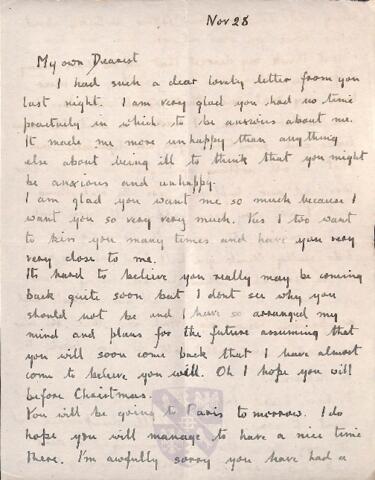 Nov 28
My own Dearest
I had such a dear lovely letter from you
last night. I am very glad you had no time
practically in which to be anxious about me.
It made me more unhappy than anything
else about being ill to think that you might
be anxious and unhappy.
I am glad you want me so much because I
want you so very very much. Yes I too want
to kiss you many times and have you very
very close to me.
Its hard to believe you really may be coming
back quite soon but I dont see why you
should not be and I have so arranged my
mind and plans for the future assuming that
you will soon come back that I have almost
come to believe you will. Oh I hope you will
before Christmas.
You will be going to Paris to morrow. I do
hope you will manage to have a nice time
there. I'm awfully sorry you have had a